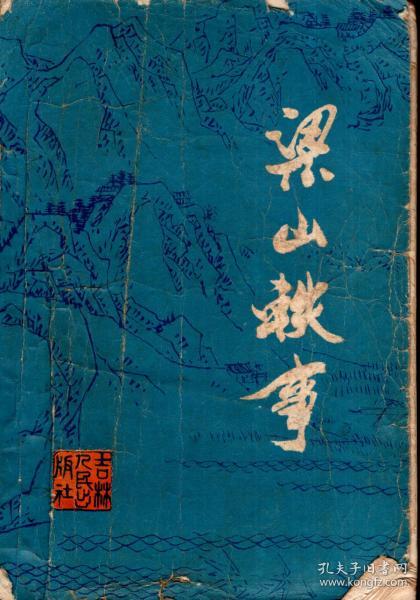 梁山轶事
吉林
人民出
版社
孔夫子旧书网
www.kongfz.com